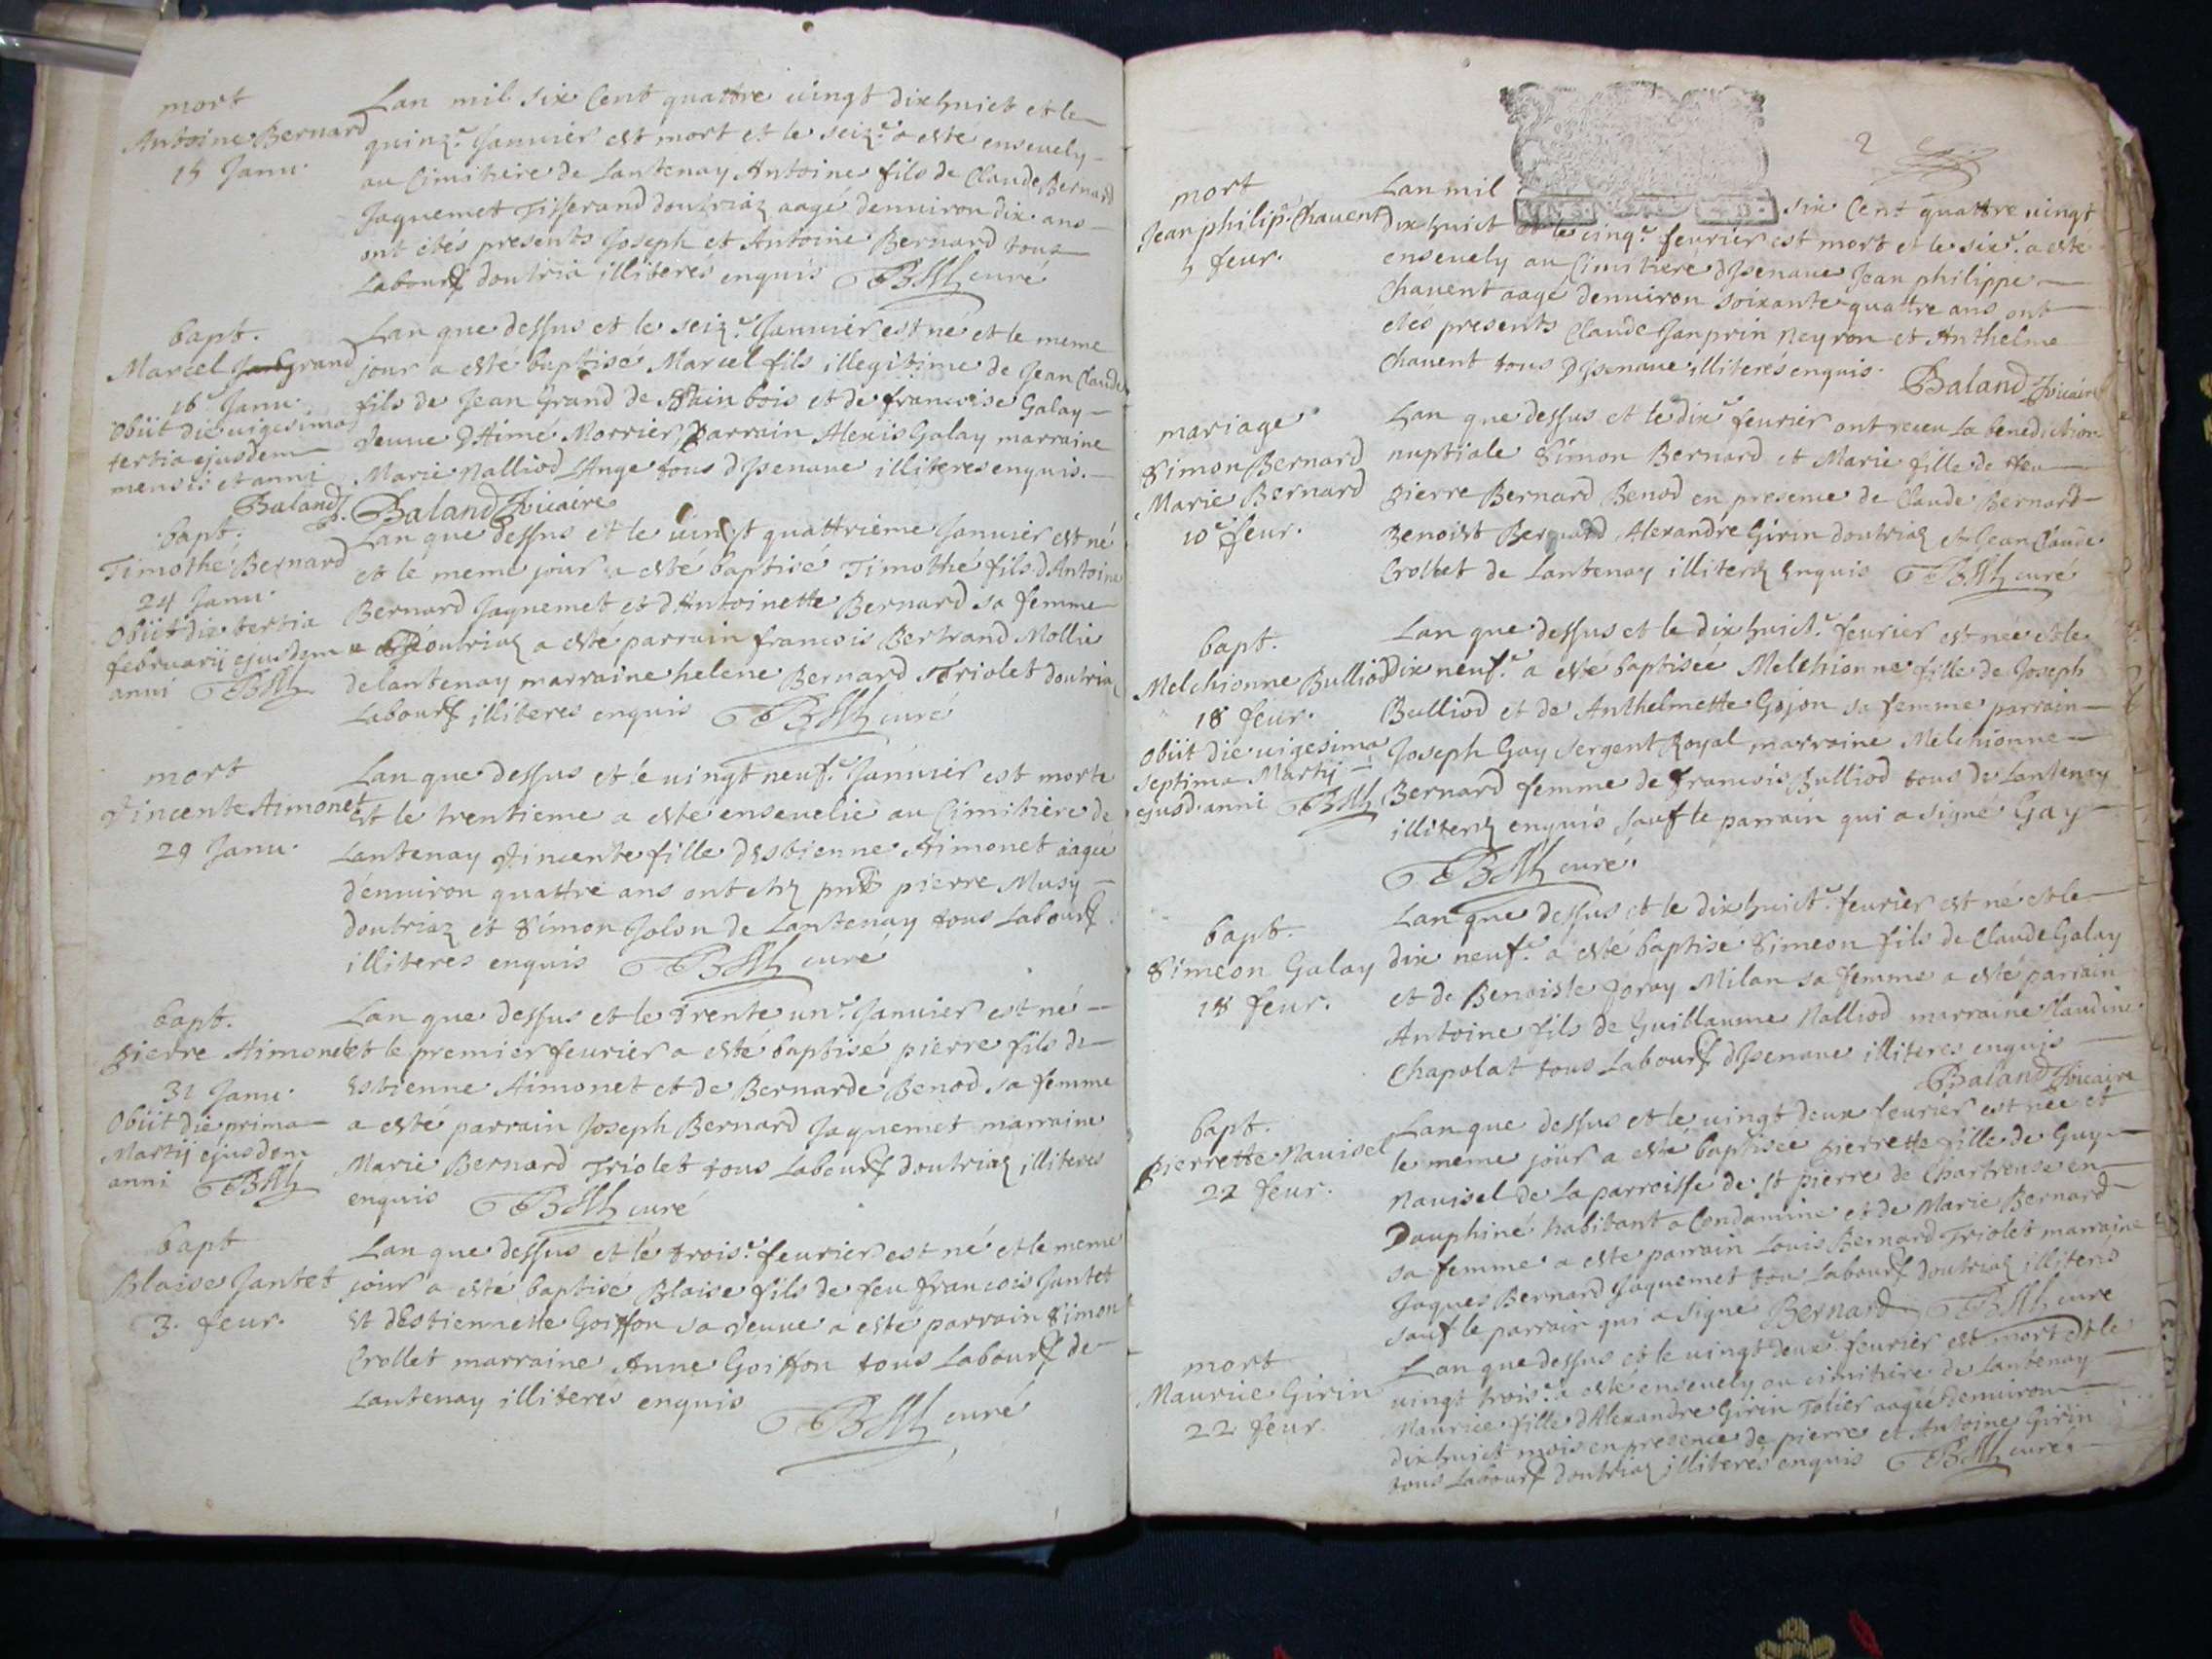 mort
Antoine Bernard
15 Janu.
Lan mil six Cent quattre uingt dixhuict et le
quinz.e Januier est mort et le seiz.e a esté enseuely
au Cimitiere de Lantenay Antoine fils de Claude Bernard
Jaquemet Tisserand doutriaz aagé denuiron dix ans
ont étés presents Joseph et Antoine Bernard tous
Labour doutria illiterés enquis curé
bapt.
Marcel grand
16 Janu.
Obiit die uigesima
tertia ejusdem
mensis et anni
Baland
Lan que dessus et le seiz.e Januier est né et le meme
jour a esté baptisé Marcel fils illegitime de Jean Claude
fils de Jean Grand de bois et de francoise Galay
Veuue d'Aimé Morrier, parrain Alexis Galay marraine
Marie Nalliod L'Ange tous dJsenaue illiteres enquis.
Baland Vicaire
bapt.
Timothé Bernard
24 Janu.
Obiit die tertia
februarij ejusdem
anni
Lan que dessus et le uingt quattrieme Januier est né
et le meme jour a esté baptisé Timothé fils d'Antoine
Bernard Jaquemet et d'Antoinette Bernard sa femme
doutriaz a esté parrain francois Bertrand Mollie
delantenay marraine helene Bernard Triolet doutriaz
Labour illiteres enquis curé
mort
Vincente Aimonet
29 Janu.
Lan que dessus et le uingt neuf.e Januier est morte
et le trentieme a esté enseuelie au Cimitiere de
Lantenay Vincente fille d'Estienne Aimonet aagée
d'enuiron quattre ans ont etez pnts pierre Musy
doutriaz et Simon Jolon de Lantenay tous Labour
illiteres enquis curé
bapt.
pierre Aimonet
31 Janu.
Obiit die prima
Martij ejusdem
anni
Lan que dessus et le trente un.e Januier est né
et le premier feurier a esté baptisé pierre fils de
Estienne Aimonet et de Bernarde Benod sa femme
a esté parrain Joseph Bernard Jaquemet marraine
Marie Bernard Triolet tous Labour doutriaz illiteres
enquis curé
bapt
Blaise Jantet
3. feur.
Lan que dessus et le trois.e feurier est né et le meme
jour a esté baptisé Blaise fils de feu francois Jantet
et dEstiennette Goiffon sa Veuue a esté parrain Simon
Crollet marraine Anne Goiffon tous Labour de
Lantenay illiterés enquis
curé
2
mort
Jean philip.e Chauent
5 feur.
Lan mil six Cent quattre uingt
dixhuict et le cinq.e feurier est mort et le six.e a esté
enseuely au Cimitiere dJsenaue Jean philippe
Chauent aagé denuiron soixante quattre ans ont
etes presents Claude Janprin Neyron et Anthelme
Chauent tous dJsenaue illiterés enquis.
Baland Vicaire
mariage
Simon Bernard
Marie Bernard
10e feur.
Lan que dessus et le dix.e feurier ont receu la benediction
nuptiale Simon Bernard et Marie fille de feu
pierre Bernard Benod en presence de Claude Bernard
Benoist Bernard Alexandre Girin doutriaz et Jean Claude
Crollet de Lantenay illiterez enquis curé
bapt.
Melchionne Bulliod
18 feur.
Obiit die uigesima
septima Martij
ejusd. anni
Lan que dessus et le dixhuict.e feurier est née et le
dix neuf.e a esté baptiseé Melchionne fille de Joseph
Bulliod et de Anthelmette Gojon sa femme parrain
Joseph Gay Sergent Royal marraine Melchionne
Bernard femme de francois Bulliod tous de Lantenay
illiterez enquis sauf le parrain qui a signé Gay
curé.
bapt.
Simeon Galay
18 feur.
Lan que dessus et le dixhuict.e feurier est né et le
dix neuf.e a esté baptisé Simeon fils de Claude Galay
et de Benoiste Joray Milan sa femme a esté parrain
Antoine fils de Guillaume Nalliod marraine Claudine
Chapolat tous Labour dJsenaue illiteres enquis
Baland Vicaire
bapt.
pierrette Nauisel
22 feur.
Lan que dessus et le uingt deux feurier est née et
le meme jour a esté baptisée pierrette fille de Guy
Nauisel de la parroisse de St pierre de Chartreuse en
Dauphiné habitant a Condamine et de Marie Bernard
sa femme a esté parrain Louis Bernard Triolet marraine
Jaques Bernard Jaquemet tous Labour doutriaz illiteres
sauf le parrain qui a signe Bernard curé
mort
Maurice Girin
22 feur.
Lan que dessus et le uingt deux.e feurier est mort et le
uingt trois.e a esté enseuely au cimitiere de Lantenay
Maurice fille d'Alexandre Girin Tolier aagée denuiron
dixhuict mois en presence de pierre et Antoine Girin
tous Labour doutriaz illiterés enquis curé.